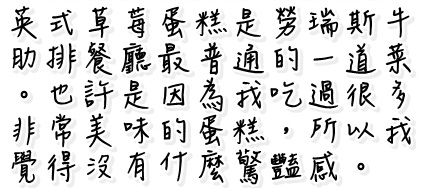 英式草莓蛋糕是勞瑞斯牛
肋排餐廳最普通的一道菜
。也許是因為我吃過很多
非常美味的蛋糕，所以我
覺得沒有什麼驚豔感。